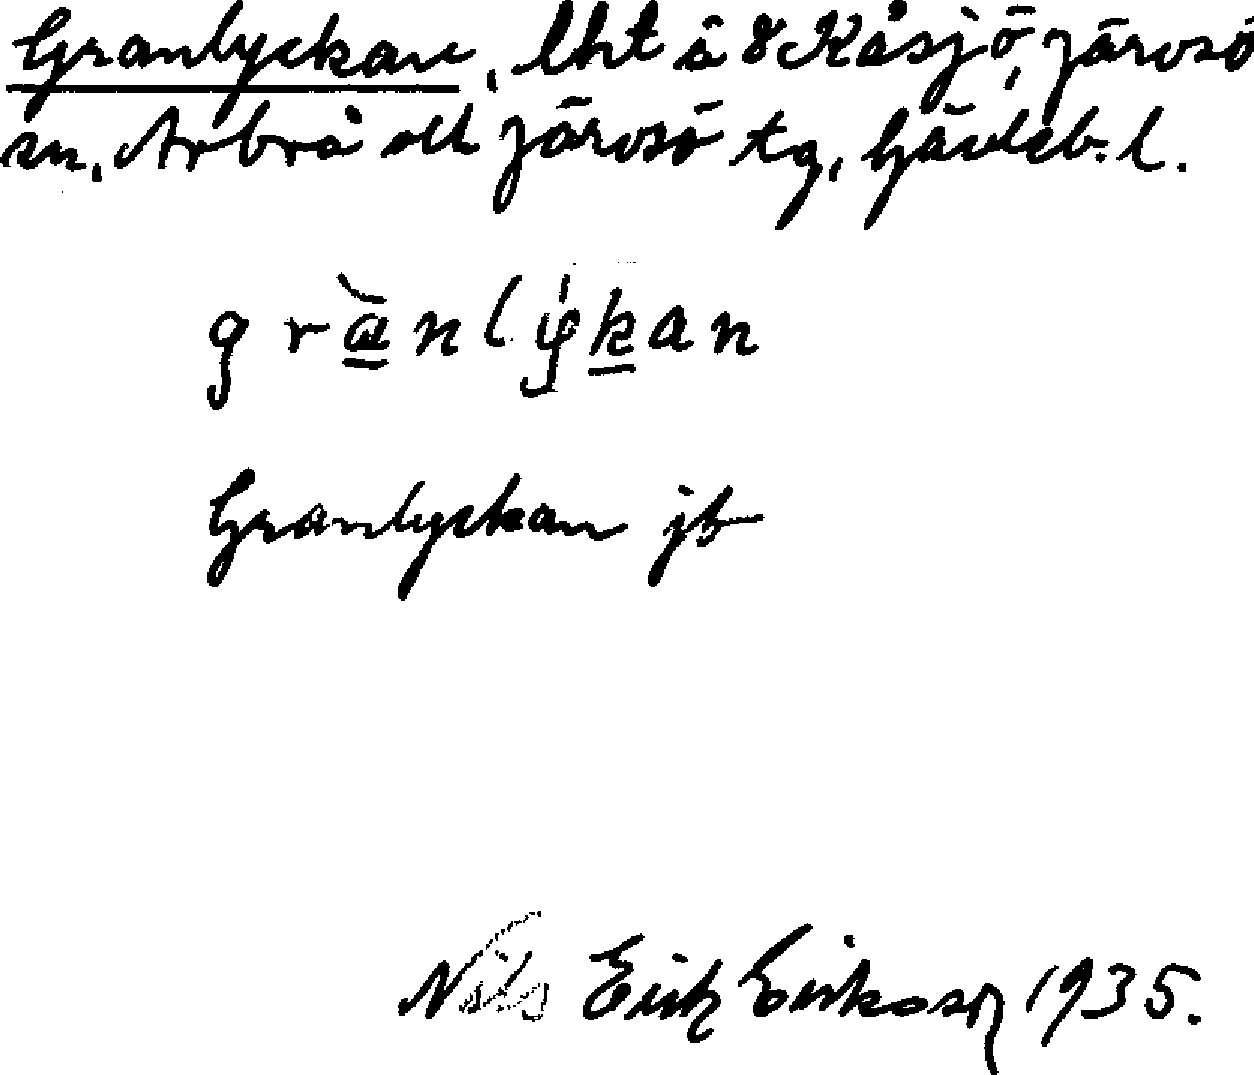 Granlyckan, lht å 8 Kåsjö, Järvsö
sn, Arbrå och Järvsö tg, Gävleb. l.
grànlykan
Granlyckan jb
Nils Erik Eriksson 1935.